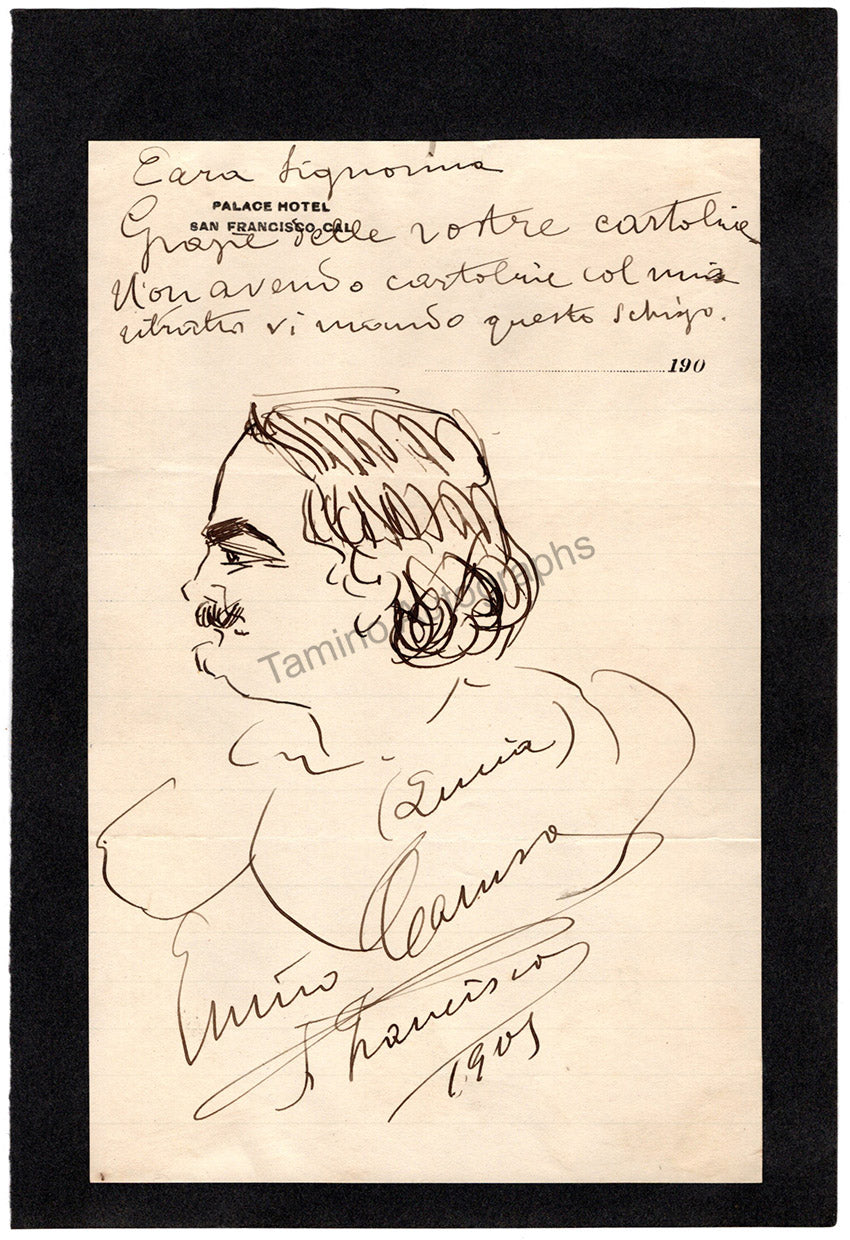 Cara Signorina
PALACE HOTEL
SAN FRANCISCO, CAL
Grazie delle vostre cartoline
Non avendo cartoline col mio
ritratto vi mando questo schizzo.
190
Tamino Autographs
(Lucia)
Enrico Caruso
S Francisco
1905